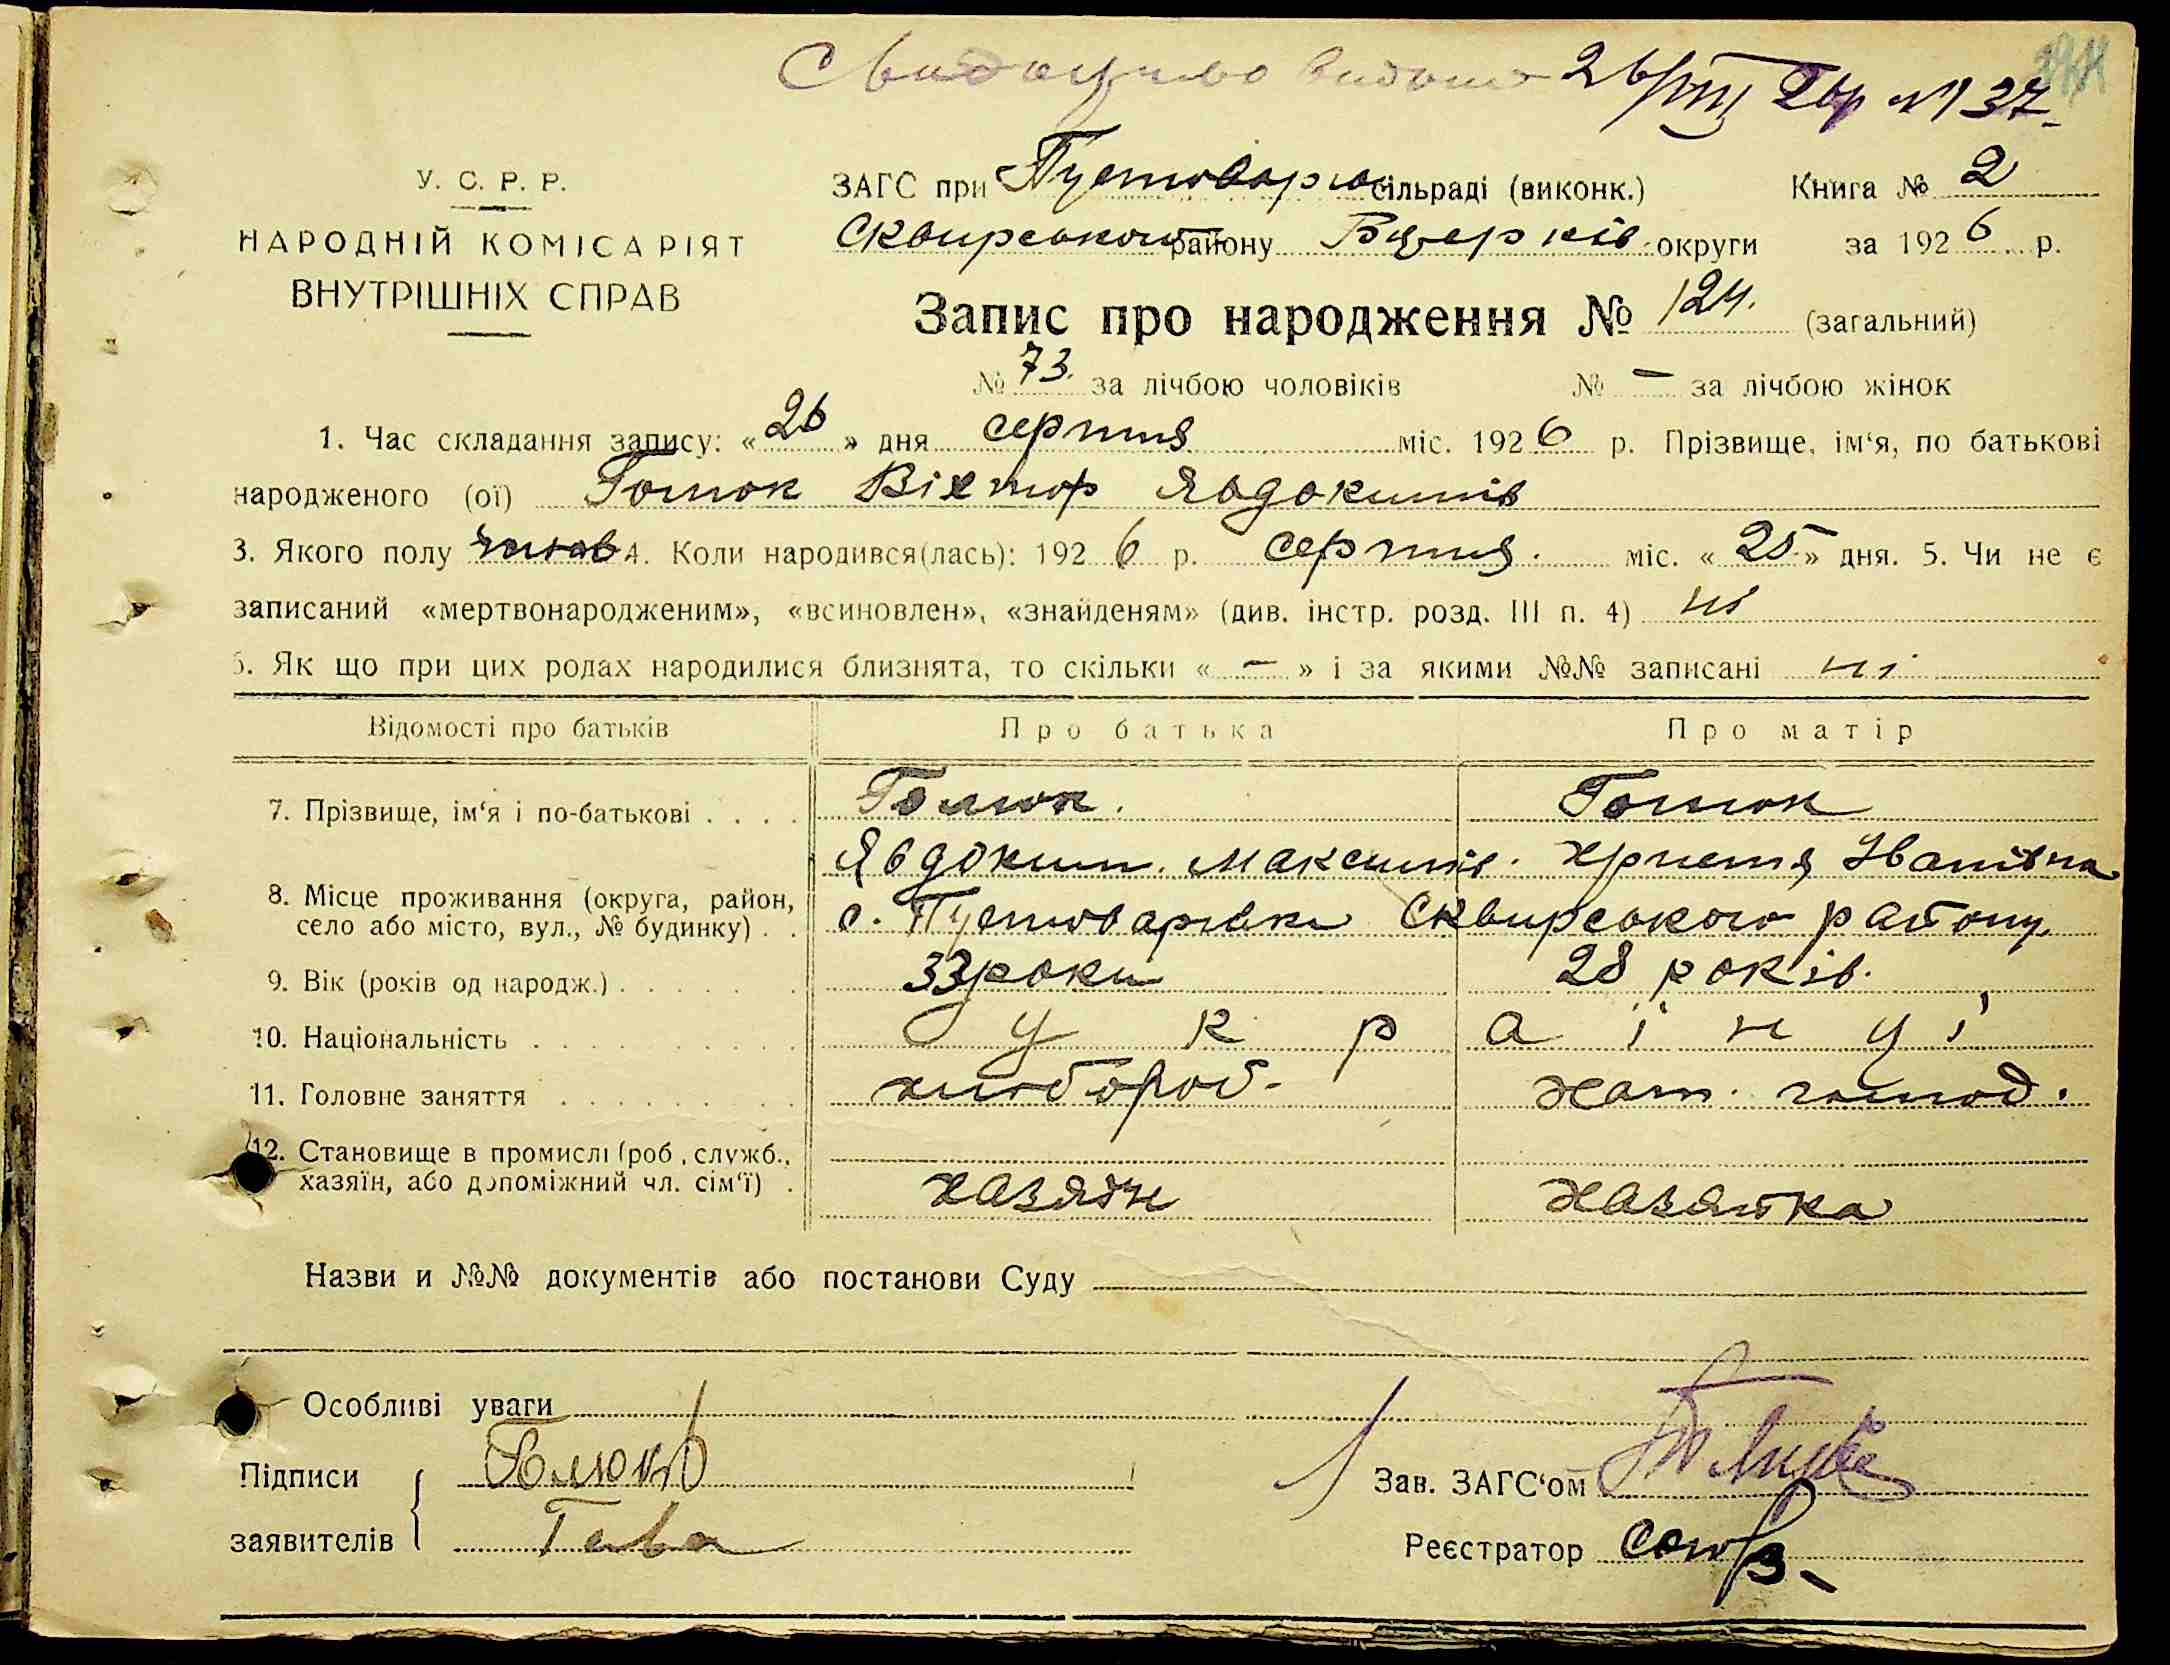 Свидоцтво видано 26/VIII 26р № 137
У. С. Р. Р.
НАРОДНІЙ КОМІСАРІЯТ
ВНУТРІШНІХ СПРАВ
ЗАГС при Пустоварів сільраді (виконк.) Книга № 2
Сквирського району Б церків. округи за 1926 р.
Запис про народження № 124. (загальний)
№ 73. за лічбою чоловіків № – за лічбою жінок
1. Час складання запису: «26» дня серпня міс. 1926 р. Прізвище, ім‘я, по батькові
народженого (ої) Гомок Віктор Явдокимів
3. Якого полу чолов 4. Коли народився(лась): 1926 р. серпня. міс. «25» дня. 5. Чи не є
записаний «мертвонародженим», «всиновлен», «знайденям» (див. інстр. розд. III п. 4) ні
6. Як що при цих родах народилися близнята, то скільки «–» і за якими №№ записані ні
Відомості про батьків Про батька Про матір
7. Прізвище, ім‘я і по-батькові . . . .
Явдоким. Максимів. Христя Іванівна
8. Місце проживання (округа, район,
село або місто, вул., № будинку) . . с. Пустоварівки Сквирського району.
9. Вік (років од народж.) . . . . . 33 роки 28 років.
10. Національність . . . . . . . . . у к р а ї н ц і
11. Головне заняття . . . . . . . . хлібороб. хат. господ.
12. Становище в промислі (роб., служб.,
хазяїн, або допоміжний чл. сім‘ї) . хазяїн хазяйка
Назви и №№ документів або постанови Суду
Особливі уваги
Підписи
заявителів
Зав. ЗАГС‘ом
Реєстратор